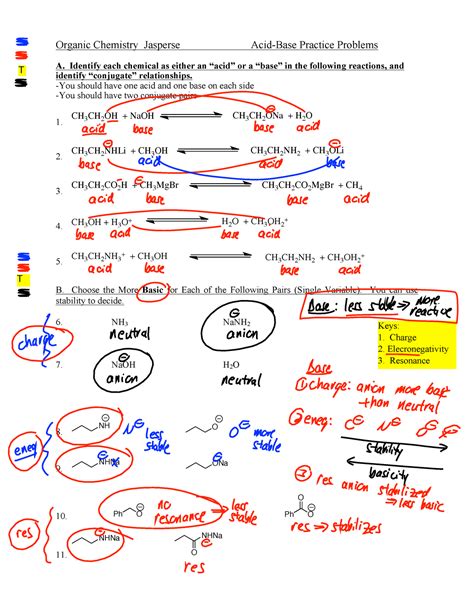 Organic Chemistry Jasperse Acid-Base Practice Problems
T
A. Identify each chemical as either an “acid” or a “base” in the following reactions, and
identify “conjugate” relationships.
-You should have one acid and one base on each side
-You should have two conjugate pairs
1. CH3CH2OH + NaOH CH3CH2ONa + H2O
acid base base acid
2. CH3CH2NHLi + CH3OH CH3CH2NH2 + CH3OLi
base acid acid base
3. CH3CH2CO2H + CH3MgBr CH3CH2CO2MgBr + CH4
acid base base acid
4. CH3OH + H3O+ H2O + CH3OH2+
base acid base acid
5. CH3CH2NH3+ + CH3OH CH3CH2NH2 + CH3OH2+
acid base base acid
T
B. Choose the More Basic for Each of the Following Pairs (Single Variable). You can use
stability to decide.
Base: less stable ⇒ more reactive
Keys:
1. Charge
2. Elecronegativity
3. Resonance
charge
6. NH3 NaNH2
neutral anion
7. NaOH H2O
anion neutral
Base
① charge: anion more basic
than neutral
② eneg: C⊖ N⊖ O⊖
stability
basicity
③ res anion stabilized
⇒ less basic
eneg
8. NH N⊖ less stable O O⊖ more stable
9. ONa
res
10. Ph O no resonance ⇒ less stable Ph O O res ⇒ stabilizes
11. NHNa O NHNa
res